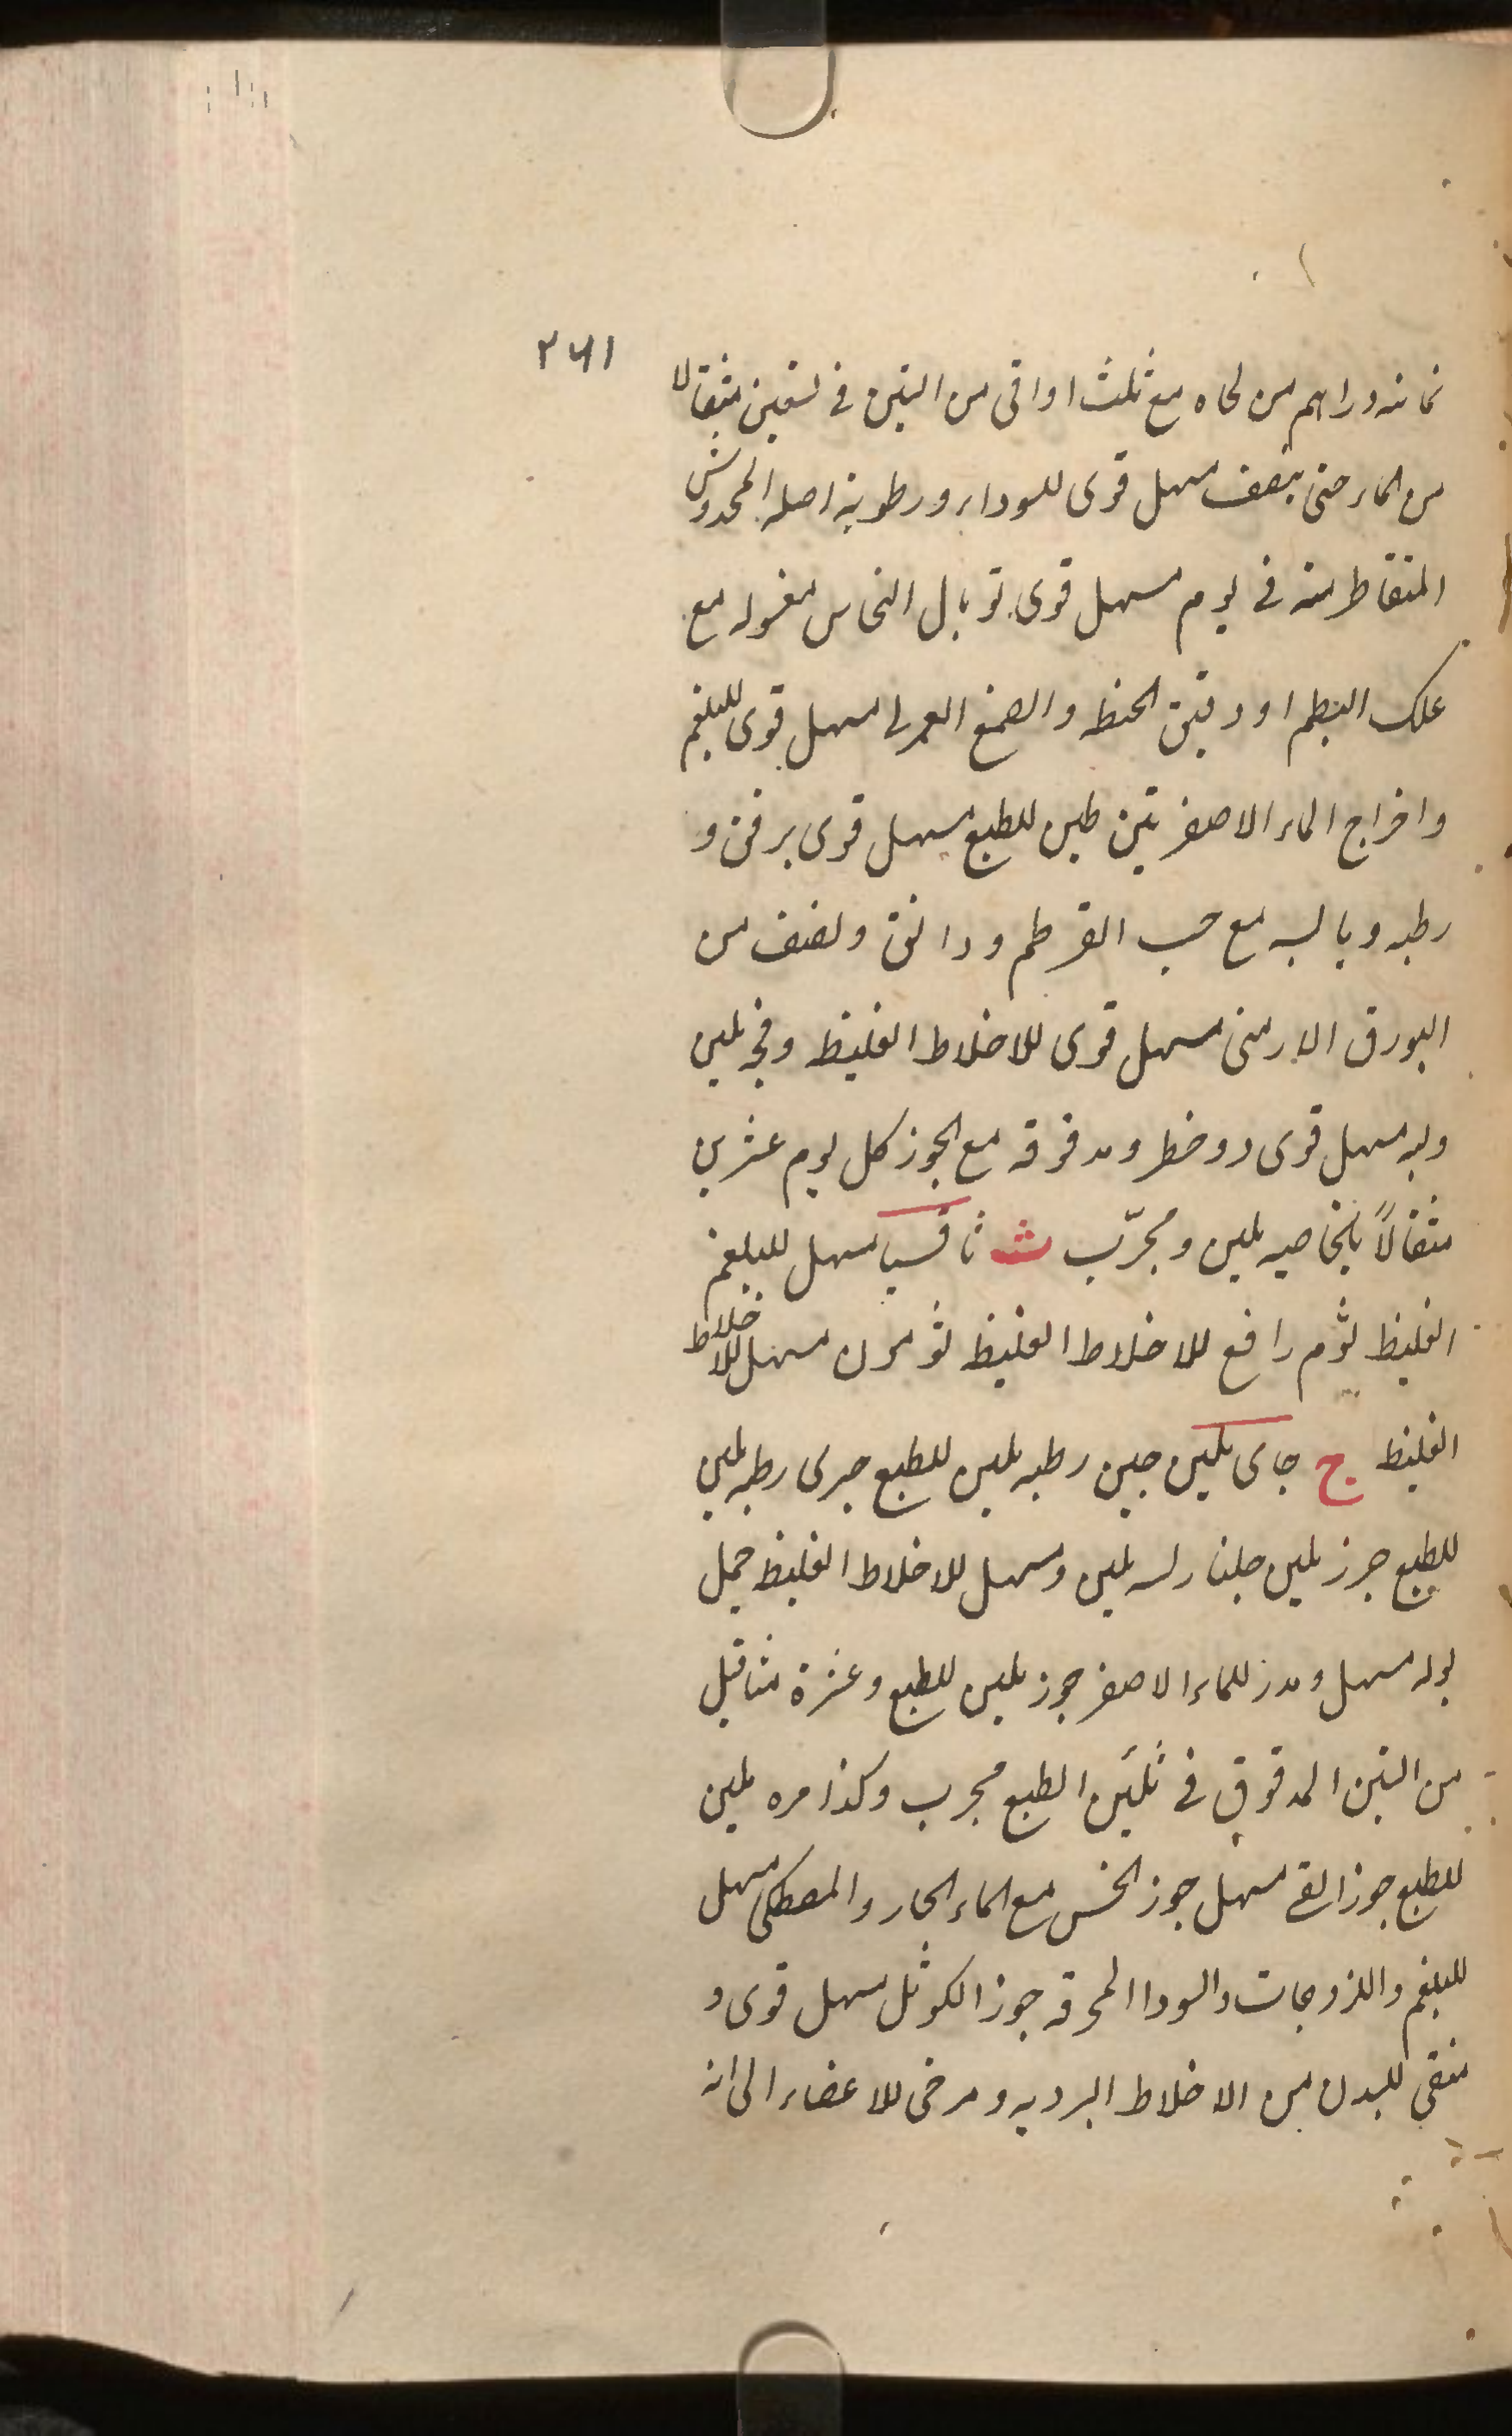 ٢٦١
ثمانیه دراهم من لحاه مع ثلث اواقی من التین فی تسعین مثقالا
من الماء حتی ینصف مسهل قوی للسوداء و رطوبة اصله المخدوش
المتقاطر منه فی یوم مسهل قوی توبال النحاس مغسوله مع
علک البطم او دقیق الحنطه والصمغ العربی مسهل قوی للبلغم
واخراج الماء الاصفر تین ملین للطبع مسهل قوی برفق و
رطبه ویابسه مع حب القرطم ودانق ونصف من
البورق الارمنی مسهل قوی للاخلاط الغلیظه وفجه ملین
ولبنه مسهل قوی دوخطر ومدقوقه مع الجوز کل یوم عشرین
مثقالاً بالخاصیه ملین ومجرّب ث ثافسیا مسهل للبلغم
الغلیظ ثوم رافع للاخلاط الغلیظه ثومون مسهل للاخلاط
الغلیظه ج جای ملین جبن رطبه ملین للطبع جری رطبه ملین
للطبع جزر ملین جلنار لسه ملین ومسهل للاخلاط الغلیظه جمل
بوله مسهل ومدر للماء الاصفر جوز ملین للطبع وعشرة مثاقیل
من التین المدقوق فی تلیین الطبع مجرب وکذا مره ملین
للطبع جوز القی مسهل جوز الخمس مع الماء الحار والمصطکی مسهل
للبلغم واللزوجات والسودا المحرقه جوز الکوثل مسهل قوی و
منقی للبدن من الاخلاط الردیه ومرخی للاعضاء الی انه